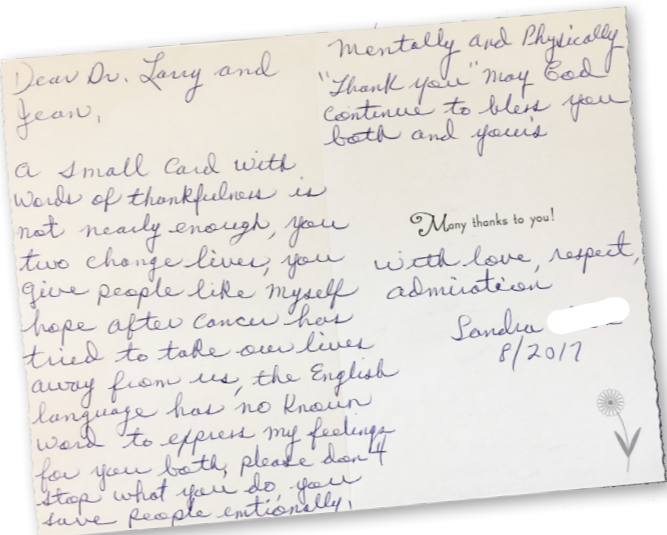 Dear Dr. Larry and
Jean,
a small card with
words of thankfulness is
not nearly enough, you
two change lives, you
give people like myself
hope after cancer has
tried to take our lives
away from us, the English
language has no known
word to express my feelings
for you both, please don't
stop what you do, you
save people emtionally,
mentally and Physically
"Thank you" may God
continue to bless you
both and your's
Many thanks to you!
with love, respect,
admiration
Sandra
8/2017